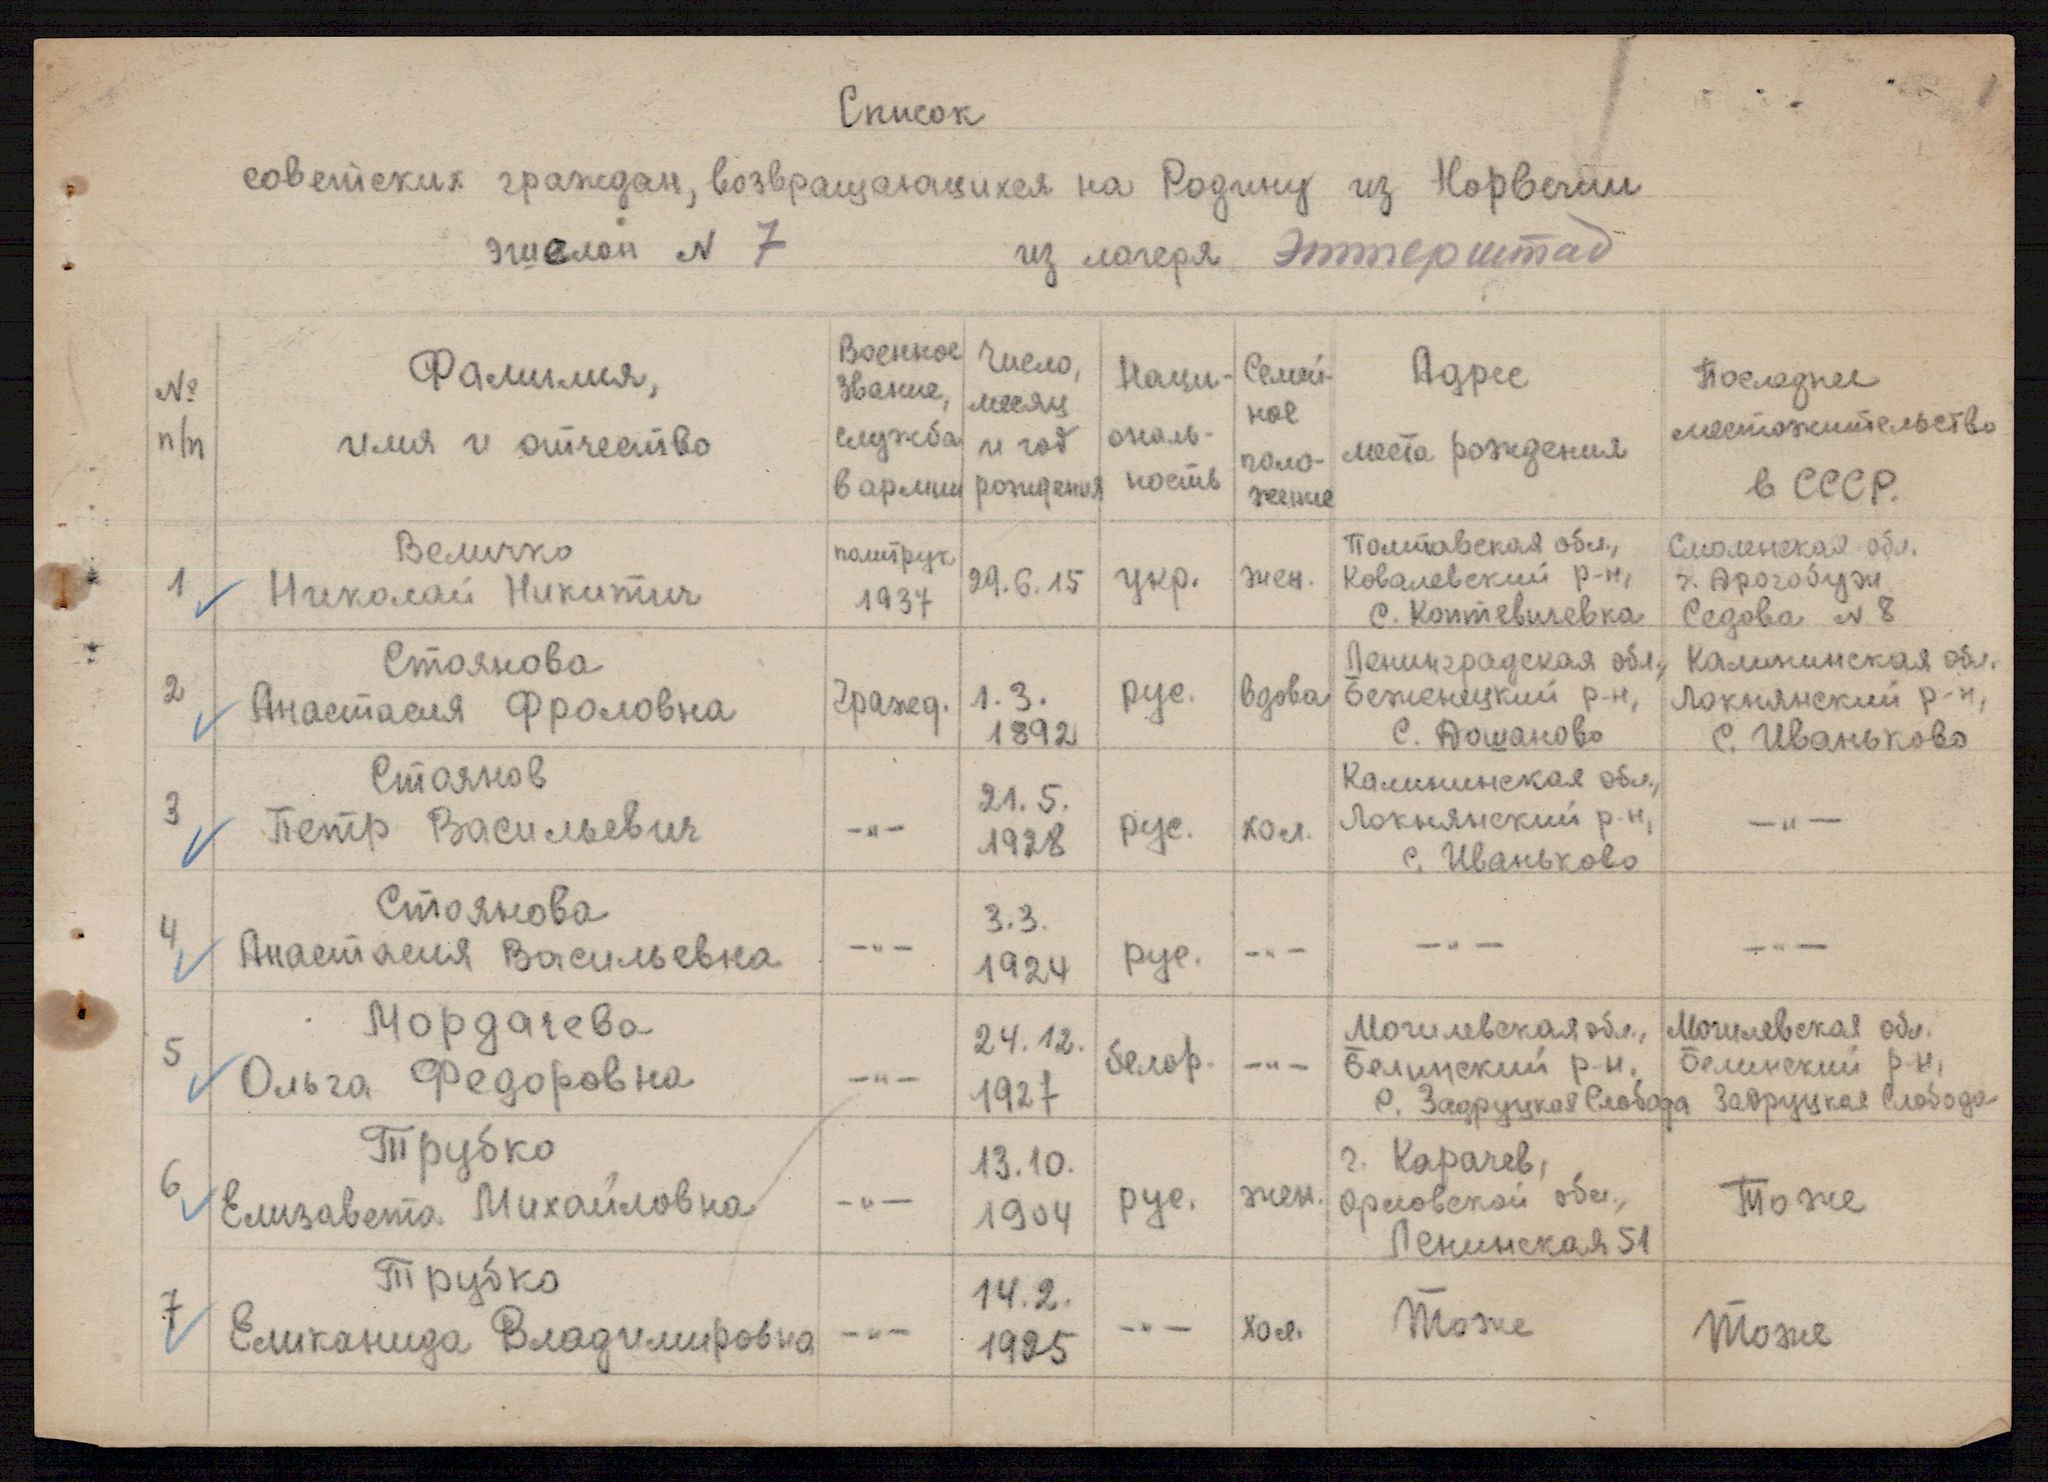 Список
советских граждан, возвращающихся на Родину из Норвегии
эшелон N 7 из лагеря Эттерштад
№ п/п
Фамилия,
имя и отчество
Военное
звание,
служба
в армии
Число,
месяц
и год
рождения
Наци-
ональ-
ность
Семей-
ное
поло-
жение
Адрес
места рождения
Последнее
местожительство
в СССР.
1
Величко
Николай Никитич
политрук
1937
29.6.15
укр.
жен.
Полтавская обл.,
Ковалевский р-н,
с. Коптевичевка
Смоленская обл.
г. Дрогобуж
Седова N 8
2
Стоянова
Анастасия Фроловна
Гражд.
1.3.
1892
рус.
вдова
Ленинградская обл.,
Беженецкий р-н,
с. Дошаново
Калининская обл.
Локнянский р-н,
с. Иваньково
3
Стоянов
Петр Васильевич
—"—
21.5.
1928
рус.
хол.
Калининская обл.,
Локнянский р-н,
с. Иваньково
—"—
4
Стоянова
Анастасия Васильевна
—"—
3.3.
1924
рус.
—"—
—"—
—"—
5
Мордачева
Ольга Федоровна
—"—
24.12.
1927
белор.
—"—
Могилевская обл.,
Белинский р-н,
с. Задруцкая Слобода
Могилевская обл.
Белинский р-н,
Задруцкая Слобода
6
Трубко
Елизавета Михайловна
—"—
13.10.
1904
рус.
жен.
г. Карачев,
Орловской обл.,
Ленинская 51
Тоже
7
Трубко
Еликанида Владимировна
—"—
14.2.
1925
—"—
хол.
Тоже
Тоже